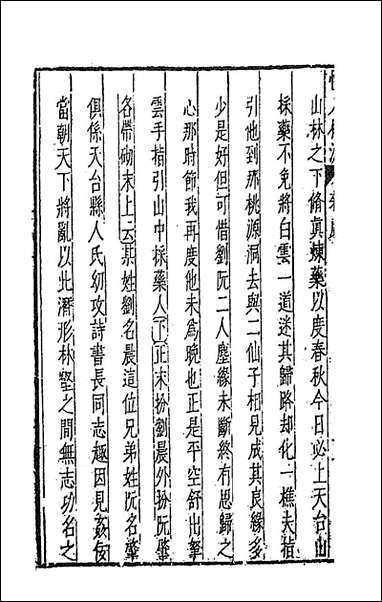 山林之下脩真煉藥以度春秋今日必上天台山
採藥不免將白雲一道迷其歸路却化一樵夫指
引他到那桃源洞去與二仙子相見成其良緣多
少是好但可惜劉阮二人塵緣未斷終有思歸之
心那時節我再度他未爲晚也正是平空舒出拏
雲手指引山中採藥人下正末扮劉晨外扮阮肇
各帶砌末上云某姓劉名晨這位兄弟姓阮名肇
俱係天台縣人氏幼攻詩書長同志趣因見奸佞
當朝天下將亂以此潛形林壑之間無志功名之